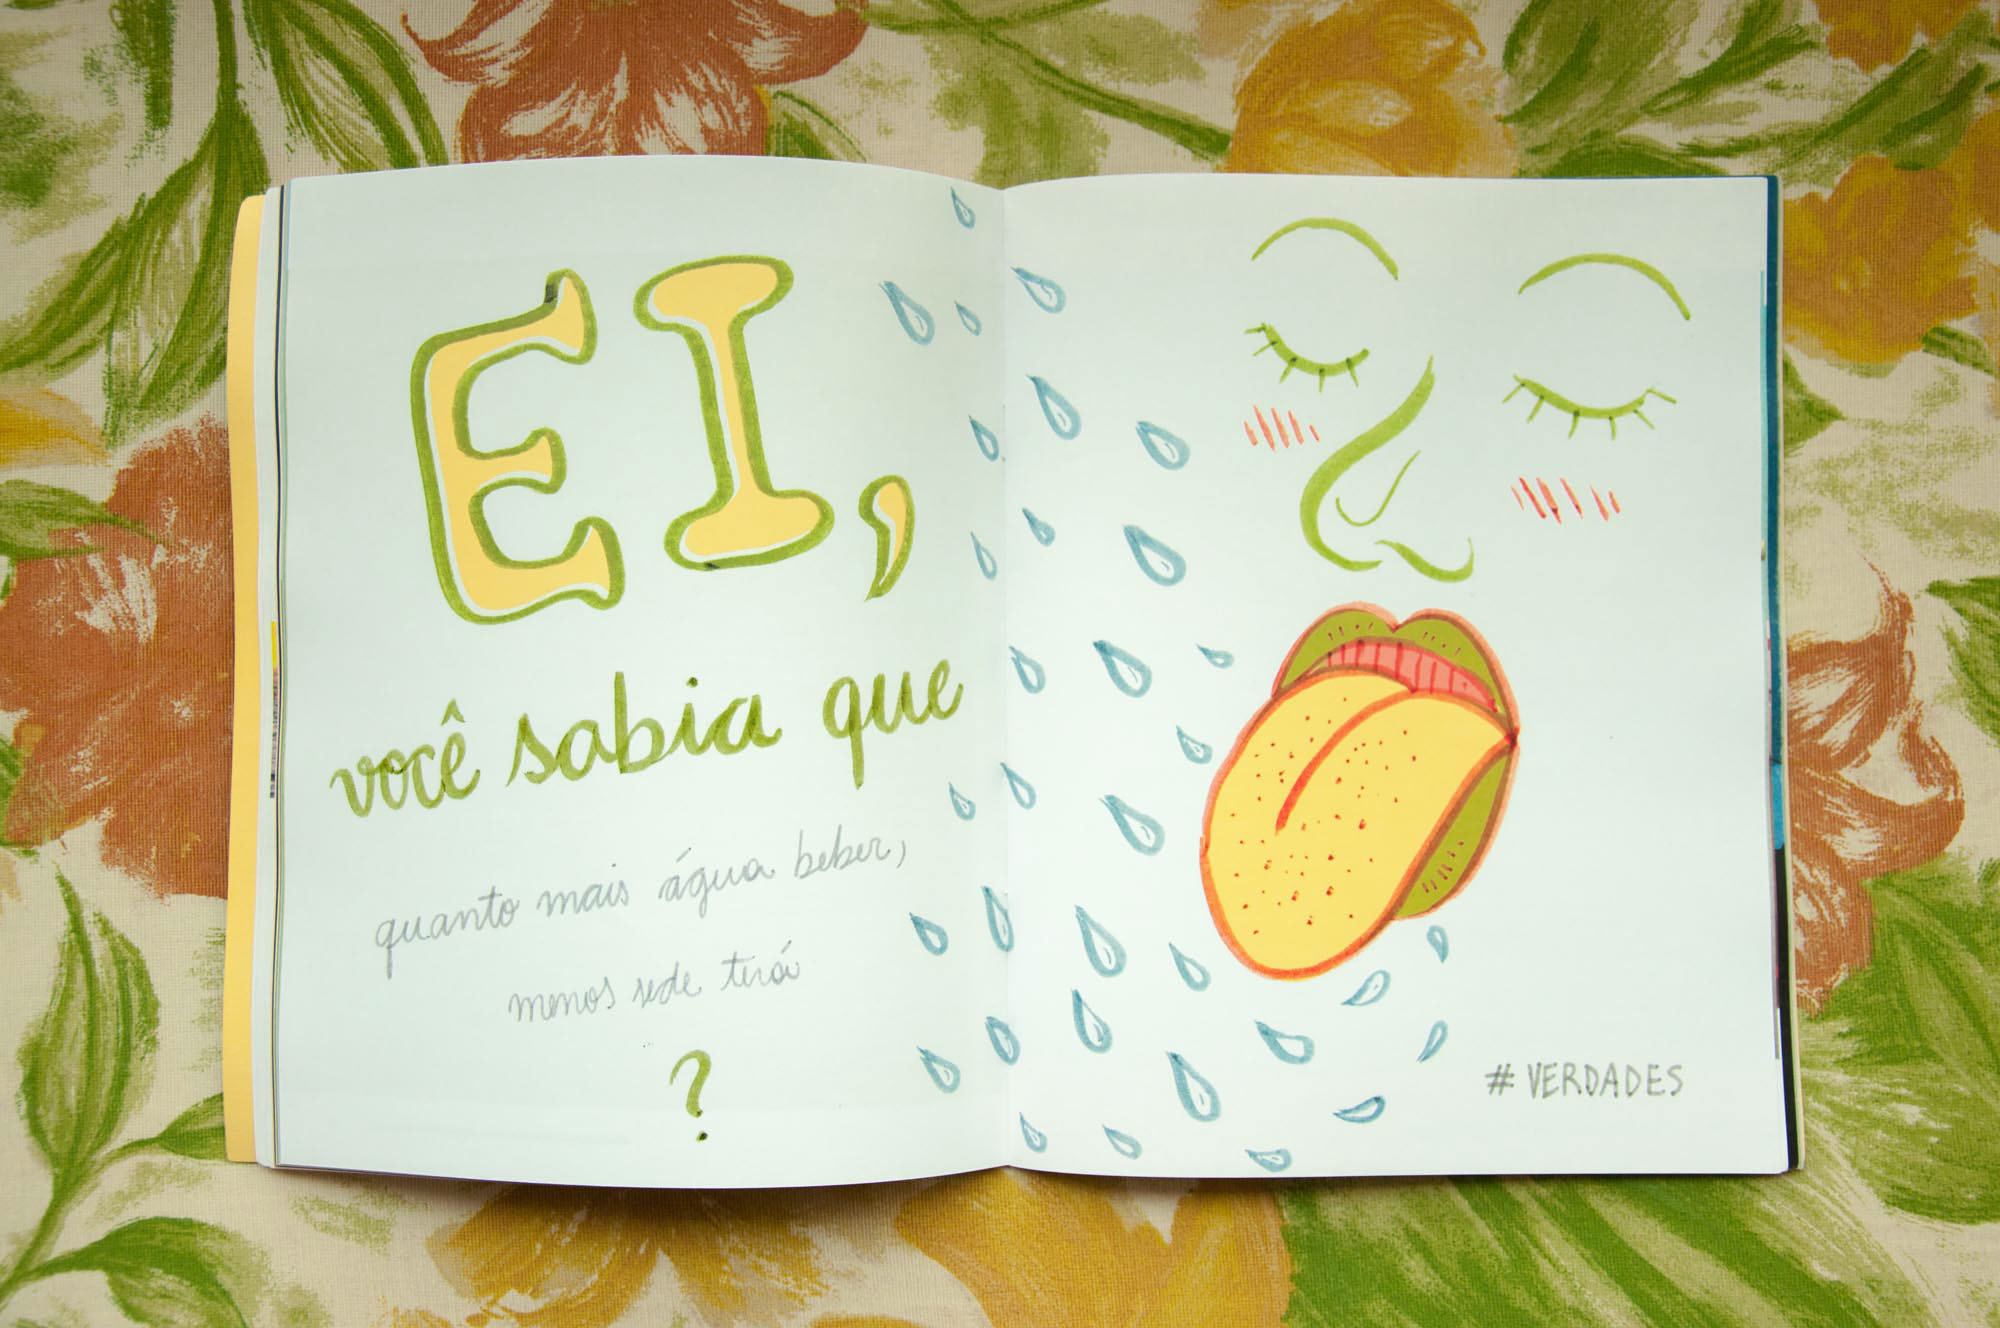 EI,
você sabia que
quanto mais água beber,
menos sede terá
?
# VERDADES